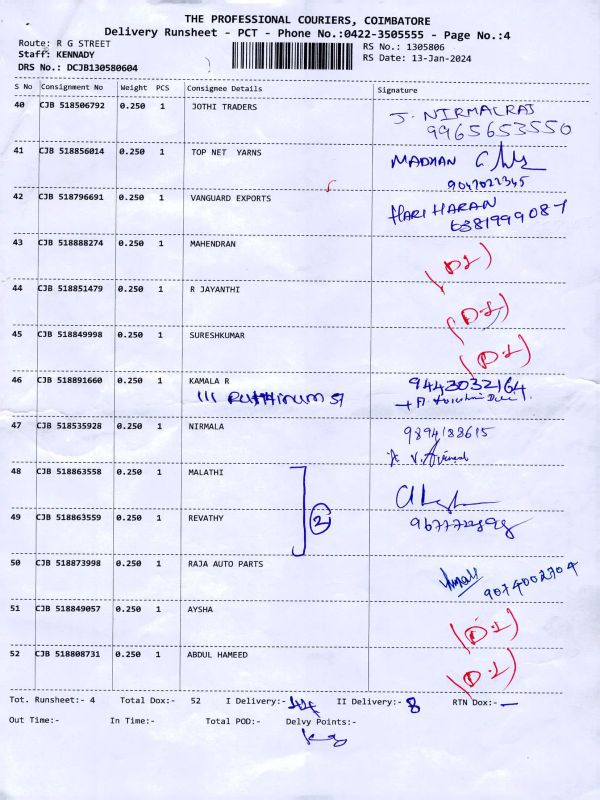 THE PROFESSIONAL COURIERS, COIMBATORE
Delivery Runsheet - PCT - Phone No.:0422-3505555 - Page No.:4
Route: R G STREET
RS No.: 1305806
Staff: KENNADY
RS Date: 13-Jan-2024
DRS No.: DCJB130580604
S No Consignment No Weight PCS Consignee Details Signature
40 CJB 518506792 0.250 1 JOTHI TRADERS J. NIRMALRAJ
9965653550
41 CJB 518856014 0.250 1 TOP NET YARNS MADHAN
9047022345
42 CJB 518796691 0.250 1 VANGUARD EXPORTS HARI HARAN
6381999087
43 CJB 518888274 0.250 1 MAHENDRAN (D.L)
44 CJB 518851479 0.250 1 R JAYANTHI (D.L)
45 CJB 518849998 0.250 1 SURESHKUMAR (D.L)
46 CJB 518891660 0.250 1 KAMALA R 9443032164
111
47 CJB 518535928 0.250 1 NIRMALA 9894188615
48 CJB 518863558 0.250 1 MALATHI
49 CJB 518863559 0.250 1 REVATHY 2
50 CJB 518873998 0.250 1 RAJA AUTO PARTS 9074002704
51 CJB 518849057 0.250 1 AYSHA (D.L)
52 CJB 518808731 0.250 1 ABDUL HAMEED (D.L)
Tot. Runsheet:- 4 Total Dox:- 52 I Delivery:- 44 II Delivery:- 8 RTN Dox:- —
Out Time:- In Time:- Total POD:- Delvy Points:-